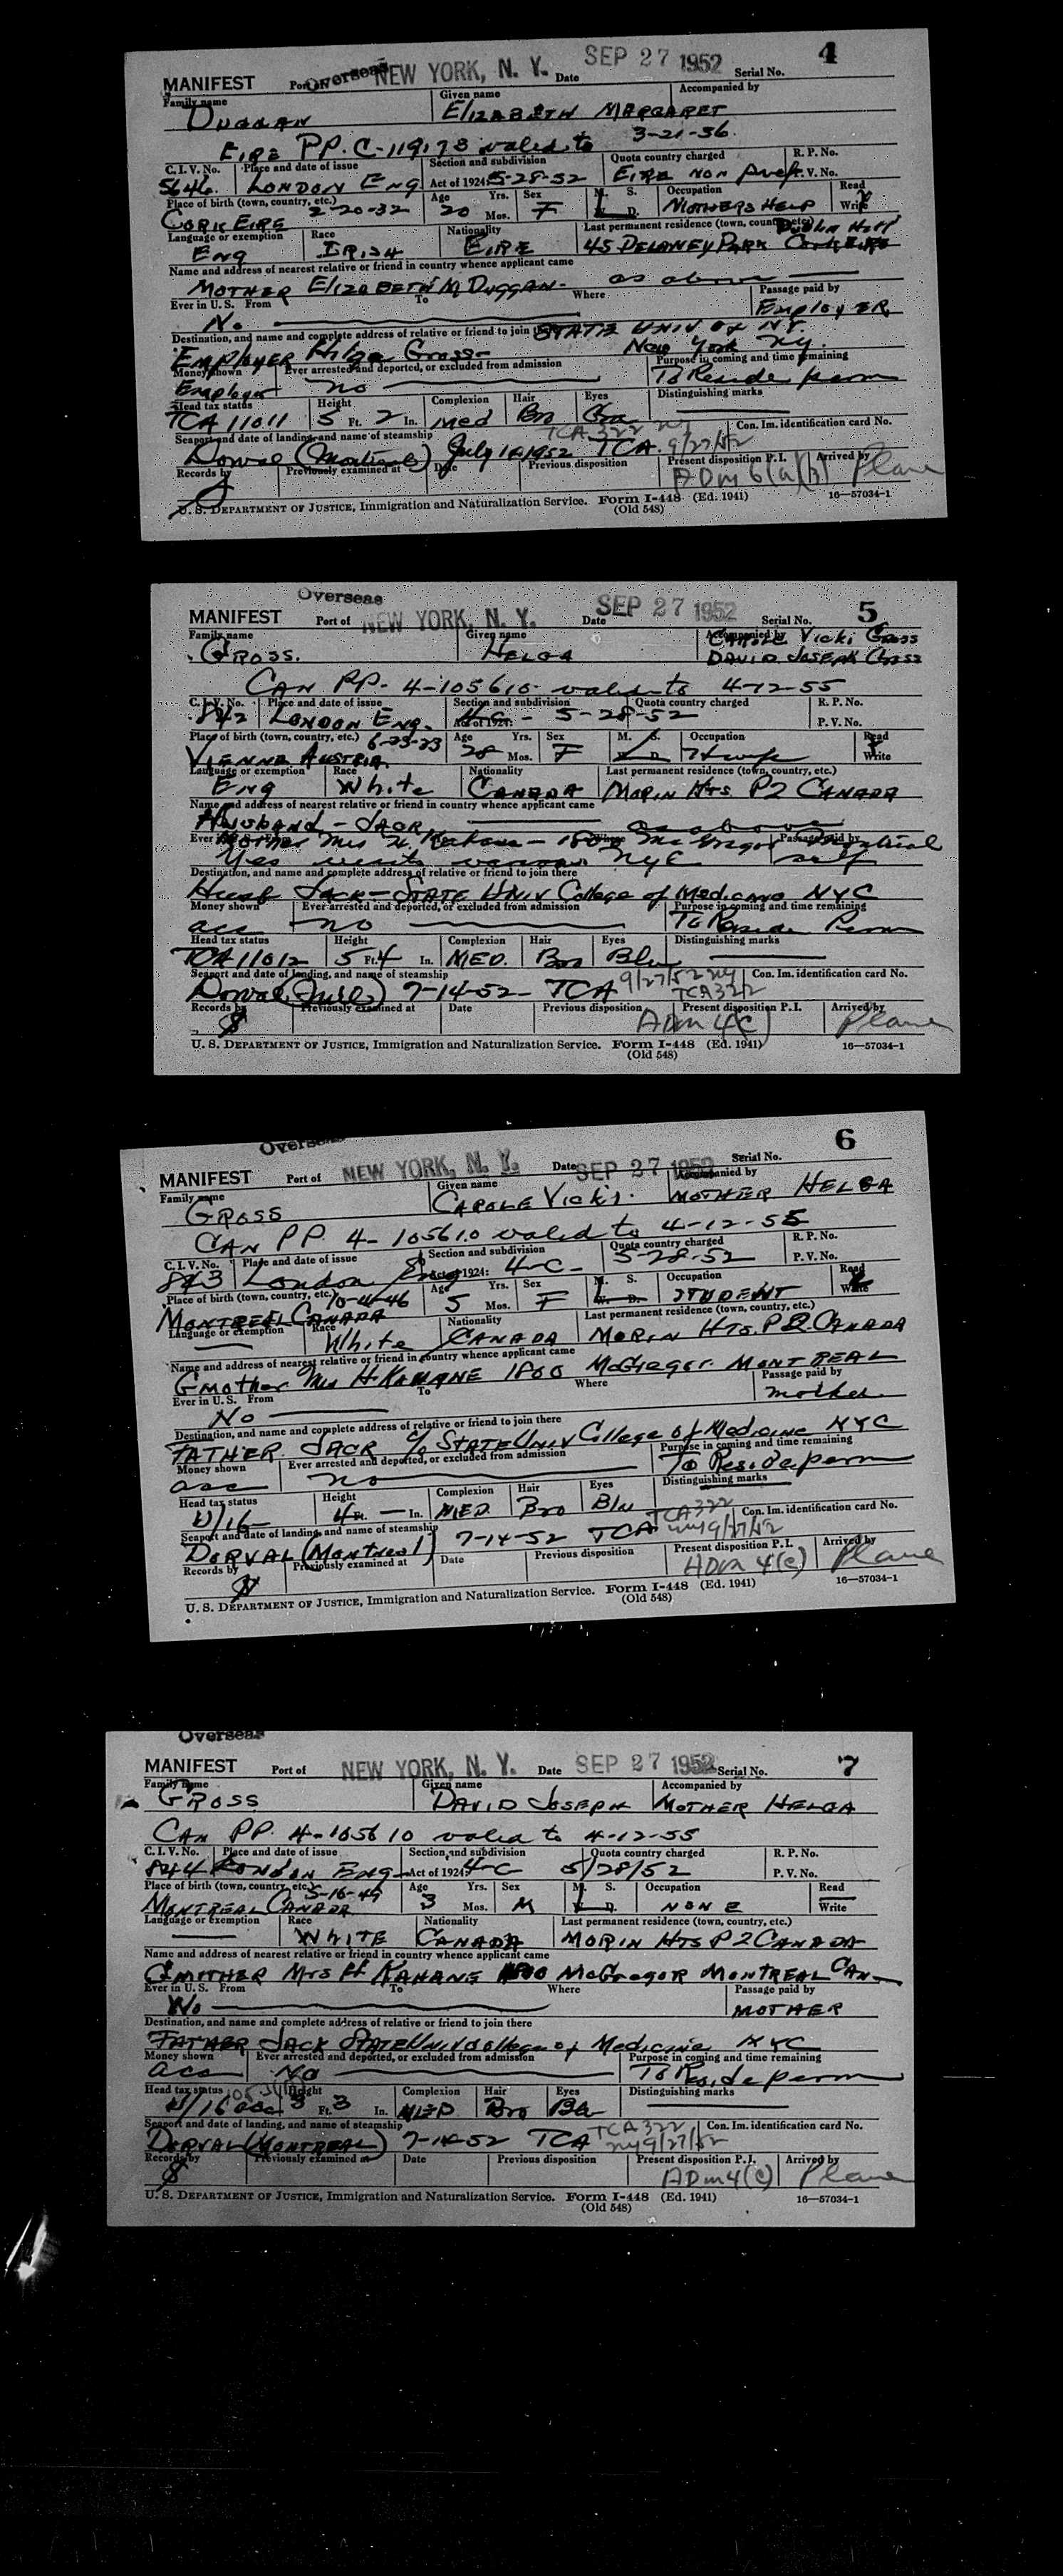 Overseas SEP 27 1952 4
MANIFEST Port of NEW YORK, N. Y. Date Serial No.
Family name Given name Accompanied by
DUGGAN ELIZABETH MARGARET
EIRE PP. C-119173 valid to 3-21-56.
C. I. V. No. Place and date of issue Section and subdivision Quota country charged R. P. No.
5646. LONDON ENG Act of 1924: 5-28-52 EIRE NON Pref. P. V. No.
Place of birth (town, country, etc.) Age Yrs. Sex M. S. Occupation Read
CORK EIRE 2-20-32 20 Mos. F W. D. MOTHERS HELP Write
Language or exemption Race Nationality Last permanent residence (town, country, etc.)
ENG IRISH EIRE 45 DELANEY PARK Dublin Hill Cork EIRE
Name and address of nearest relative or friend in country whence applicant came
MOTHER ELIZABETH M DUGGAN - as above
Ever in U. S. From To Where Passage paid by
No Employer
Destination, and name and complete address of relative or friend to join there STATE UNIV of NY.
EMPLOYER Helga Gross - New York NY.
Money shown Ever arrested and deported, or excluded from admission Purpose in coming and time remaining
Employer no To Reside perm
Head tax status Height Complexion Hair Eyes Distinguishing marks
TCA 11011 5 Ft. 2 In. Med Bro Bro
Seaport and date of landing, and name of steamship TCA 322 NY 9/27/52 Con. Im. identification card No.
Dorval (Montreal) July 14 1952 TCA
Records by Previously examined at Date Previous disposition Present disposition P. I. Arrived by
ADM 6(a)(3) Plane
U. S. DEPARTMENT OF JUSTICE, Immigration and Naturalization Service. Form I-448 (Ed. 1941) 16—57034-1
(Old 548)
Overseas SEP 27 1952 5
MANIFEST Port of NEW YORK, N. Y. Date Serial No.
Family name Given name Accompanied by CAROLE Vicki Gross
GROSS. HELGA DAVID JOSEPH Gross
CAN PP. 4-105610 valid to 4-12-55
C. I. V. No. Place and date of issue Section and subdivision Quota country charged R. P. No.
842 LONDON ENG. Act of 1924: 4-C - 5-28-52 P. V. No.
Place of birth (town, country, etc.) 6-23-23 Age Yrs. Sex M. S. Occupation Read
VIENNA AUSTRIA. 28 Mos. F W. D. Hswfe Write
Language or exemption Race Nationality Last permanent residence (town, country, etc.)
ENG White CANADA MORIN HTS PQ CANADA
Name and address of nearest relative or friend in country whence applicant came
HUSBAND - JACK as above
Ever in U. S. From Mother Mrs H. Kahane - 1800 McGregor Montreal Where Passage paid by
Yes visits various NYC self
Destination, and name and complete address of relative or friend to join there
Husb Jack - STATE UNIV College of Medicine NYC
Money shown Ever arrested and deported, or excluded from admission Purpose in coming and time remaining
acc no To Reside Perm
Head tax status Height Complexion Hair Eyes Distinguishing marks
TCA 11012 5 Ft. 4 In. MED. Bro Blu
Seaport and date of landing, and name of steamship 9/27/52 NY TCA 322 Con. Im. identification card No.
Dorval (Mtl) 7-14-52 - TCA
Records by Previously examined at Date Previous disposition Present disposition P. I. Arrived by
ADM 4(C) Plane
U. S. DEPARTMENT OF JUSTICE, Immigration and Naturalization Service. Form I-448 (Ed. 1941) 16—57034-1
(Old 548)
Overseas 6
MANIFEST Port of NEW YORK, N. Y. Date SEP 27 1952 Serial No.
Family name Given name Accompanied by
GROSS CAROLE Vicki. MOTHER HELGA
CAN PP. 4-105610 valid to 4-12-55
C. I. V. No. Place and date of issue Section and subdivision Quota country charged R. P. No.
843 London Eng Act of 1924: 4-C - 5-28-52 P. V. No.
Place of birth (town, country, etc.) 10-4-46 Age Yrs. Sex M. S. Occupation Read
MONTREAL CANADA 5 Mos. F W. D. STUDENT Write
Language or exemption Race Nationality Last permanent residence (town, country, etc.)
White CANADA MORIN HTS. PQ. CANADA
Name and address of nearest relative or friend in country whence applicant came
Gmother Mrs H KAHANE 1800 McGregor MONTREAL
Ever in U. S. From To Where Passage paid by
No mother
Destination, and name and complete address of relative or friend to join there
FATHER JACK c/o STATE UNIV College of Medicine NYC
Money shown Ever arrested and deported, or excluded from admission Purpose in coming and time remaining
acc no To Reside perm
Head tax status Height Complexion Hair Eyes Distinguishing marks
U/16 4 Ft. — In. MED Bro Blu
Seaport and date of landing, and name of steamship TCA 322 NY 9/27/52 Con. Im. identification card No.
DORVAL (Montreal) 7-14-52 TCA
Records by Previously examined at Date Previous disposition Present disposition P. I. Arrived by
ADM 4(C) Plane
U. S. DEPARTMENT OF JUSTICE, Immigration and Naturalization Service. Form I-448 (Ed. 1941) 16—57034-1
(Old 548)
Overseas
MANIFEST Port of NEW YORK, N. Y. Date SEP 27 1952 Serial No. 7
Family name Given name Accompanied by
GROSS DAVID JOSEPH MOTHER HELGA
CAN PP. 4-105610 valid to 4-12-55
C. I. V. No. Place and date of issue Section and subdivision Quota country charged R. P. No.
844 LONDON ENG - Act of 1924: 4-C 5/28/52 P. V. No.
Place of birth (town, country, etc.) 5-16-49 Age Yrs. Sex M. S. Occupation Read
MONTREAL CANADA 3 Mos. M W. D. NONE Write
Language or exemption Race Nationality Last permanent residence (town, country, etc.)
WHITE CANADA MORIN HTS PQ CANADA
Name and address of nearest relative or friend in country whence applicant came
GMOTHER Mrs H KAHANE 1800 McGregor MONTREAL CAN -
Ever in U. S. From To Where Passage paid by
No MOTHER
Destination, and name and complete address of relative or friend to join there
FATHER JACK STATE UNIV College of Medicine NYC
Money shown Ever arrested and deported, or excluded from admission Purpose in coming and time remaining
acc No To Reside perm
Head tax status Height Complexion Hair Eyes Distinguishing marks
U/16 3 Ft. 3 In. MED Bro Blu
Seaport and date of landing, and name of steamship TCA 322 NY 9/27/52 Con. Im. identification card No.
DORVAL (MONTREAL) 7-14-52 TCA
Records by Previously examined at Date Previous disposition Present disposition P. I. Arrived by
ADM 4(C) Plane
U. S. DEPARTMENT OF JUSTICE, Immigration and Naturalization Service. Form I-448 (Ed. 1941) 16—57034-1
(Old 548)